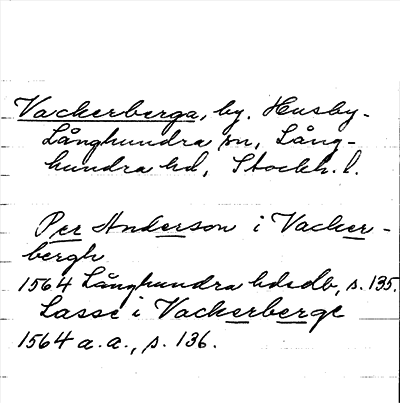 Vackerberga, by. Husby-
Långhundra sn, Lång-
hundra hd, Stockh. l.
Per Anderson i Vacker-
bergh
1564 Långhundra hdsdb, s. 135.
Lasse i Vackerberge
1564 a. a., s. 136.